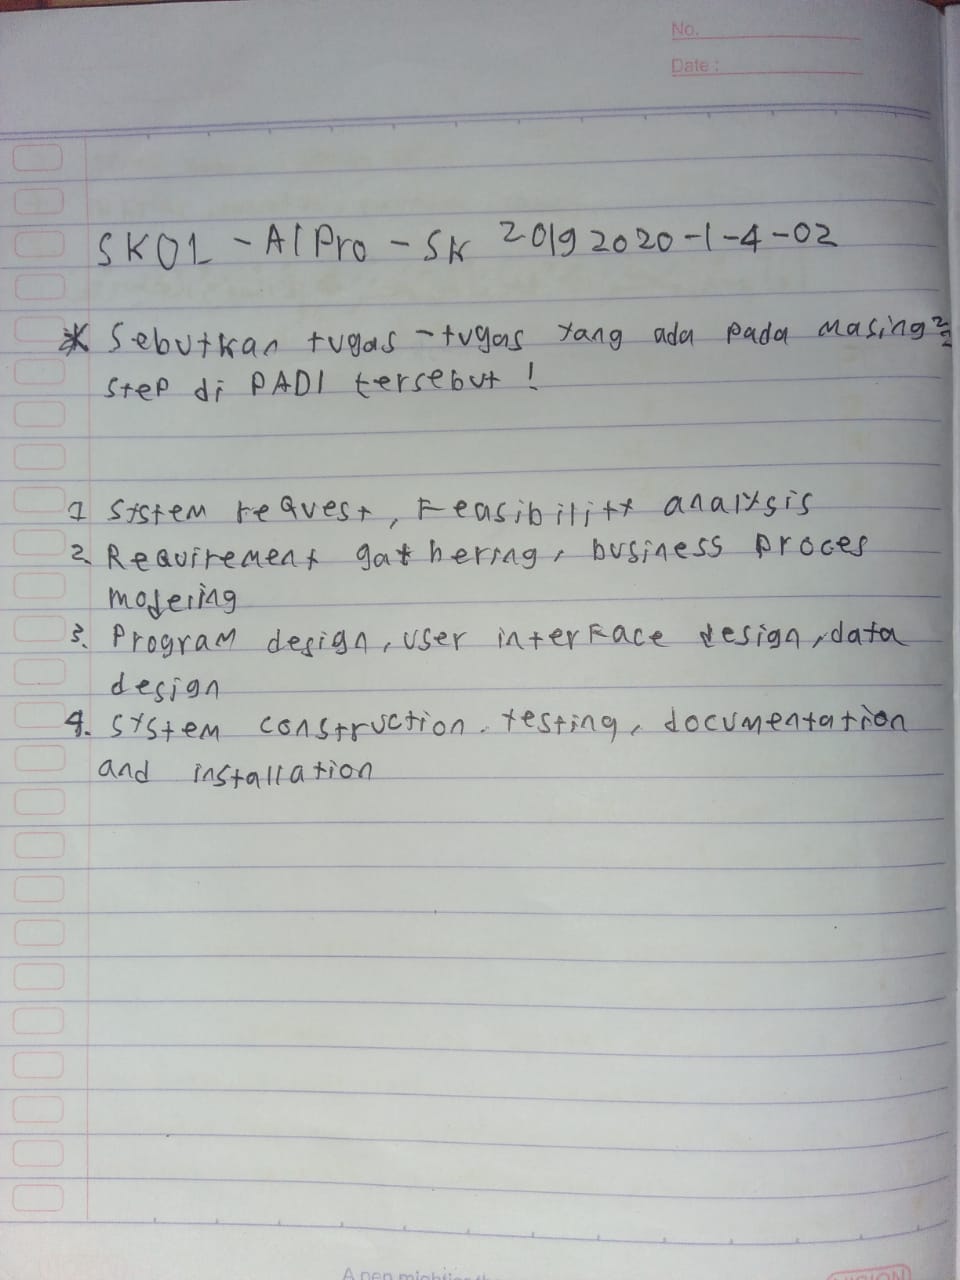 No.
Date :
SK01 - AlPro - SK 20192020-1-4-02
* Sebutkan tugas-tugas yang ada pada masing²
step di PADI tersebut !
1 System request, Feasibility analysis
2 Requirement gathering, business proces
modering
3. Program design, user interface design, data
design
4. System construction. testing, documentation
and installation
A pen